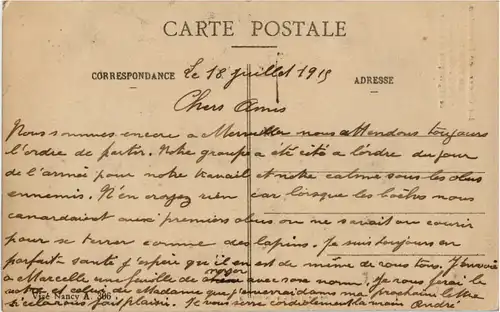 CARTE POSTALE
CORRESPONDANCE
Le 18 juillet 1915
ADRESSE
Chers Amis
Nous sommes encore a nous attendons toujours
l'ordre de partir. Notre groupe a été cité a l'ordre du jour
de l'armée pour notre travail et notre calme sous les obus
ennemis. N'en croyez rien car lorsque les boches nous
canardaient aux premiers obus on ne savait ou courir
pour se terrer comme des lapins. Je suis toujours en
parfaite santé j'espère qu'il en est de même de vous tous. J'envoie
a Marcelle une feuille de avec son nom. Je vous ferai la
votre et celui de Madame que j'enverrai dans ma prochaine lettre
si cela vous fait plaisir. Je vous serre cordialement la main André
Visé Nancy A. 306